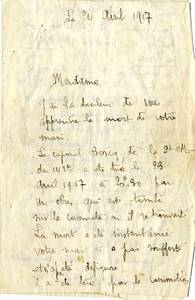 Le 24 Avril 1917
Madame
J'ai la douleur de vous
apprendre la mort de votre
mari
Le caporal Borcq de la 2e
du 147e a été tué le 23
Avril 1917 à par
un obus qui est tombé
sur la où il se trouvait
La mort a été instantanée
votre mari n'a pas souffert
et n'a été défiguré
il a été tué par la commotion